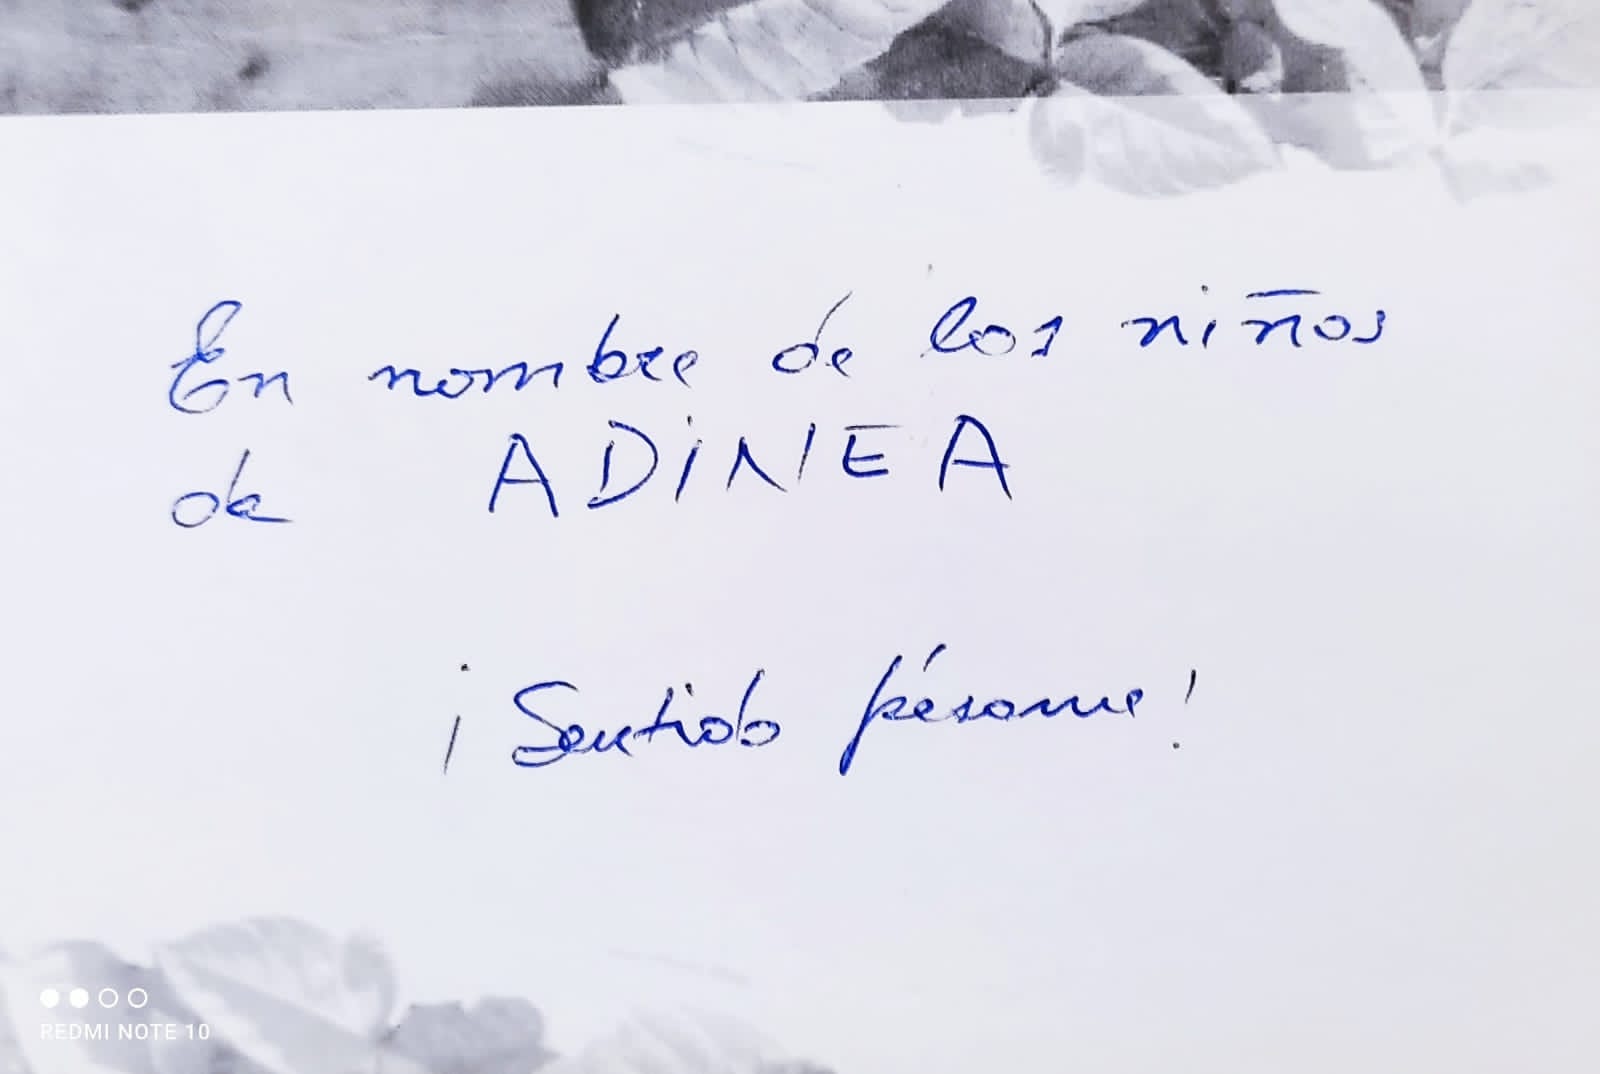 En nombre de los niños
de ADINEA
¡Sentido pésame!
REDMI NOTE 10